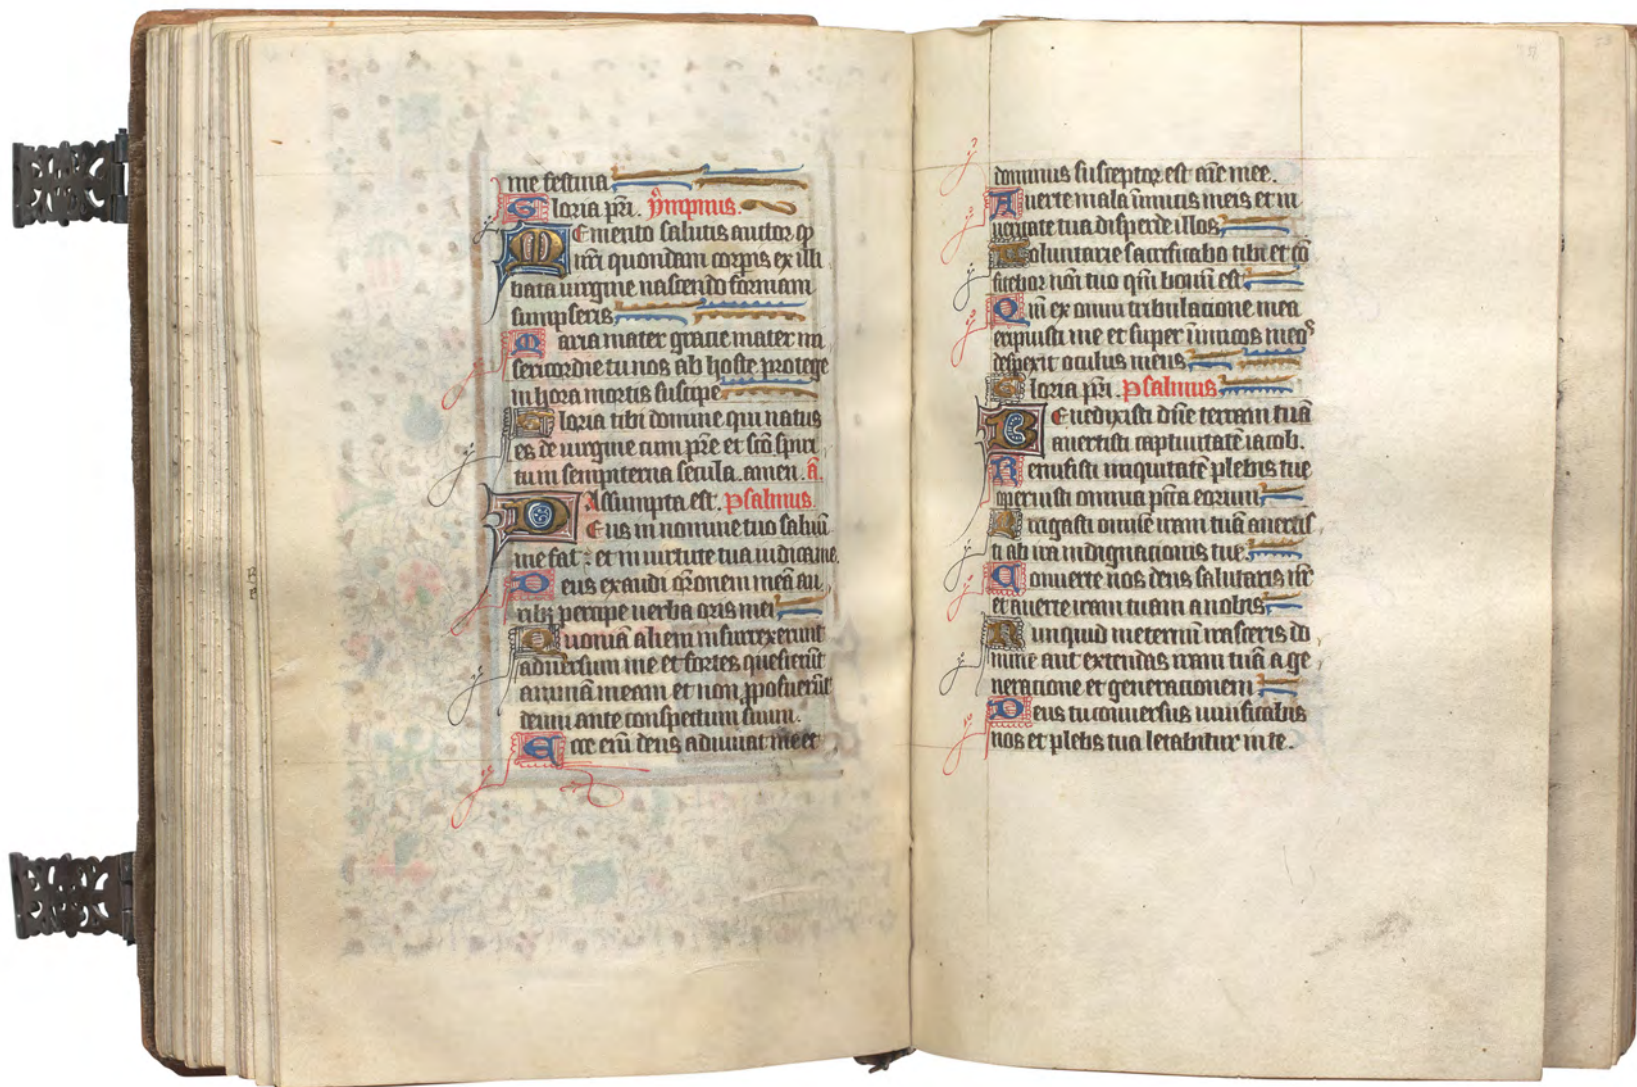 me festina
Gloria pr̄i. ympnus.
Memento salutis auctor qͥ
nr̄i quondam corpis ex illi
bata uirgine nascendo formam
sumpseris
Maria mater gracie mater mi
sericordie tu nos ab hoste protege
in hora mortis suscipe
Gloria tibi domine qui natus
es de uirgine cum pr̄e et sc̄o spiri
tu in sempiterna secula. amen. ā.
Assumpta est. Psalmus.
Deus in nomine tuo saluū
me fac : et in uirtute tua iudica me.
Deus exaudi or̄onem meā au
ribꝫ percipe uerba oris mei
Quoniā alieni insurrexerunt
aduersum me et fortes quesierūt
animā meam et non ꝓposuerūt
deum ante conspectum suum.
Ecce eni᷑ deus adiuuat me et
dominus susceptor est aīe mee.
Auerte mala īimicis meis et in
ueritate tua disperde illos
Uoluntarie sacrificabo tibi et cō
fitebor noī tuo qm̄ bonū est
Qm̄ ex omni tribulacione mea
eripuisti me et super īimicos meoˢ
despexit oculus meus
Gloria pr̄i. Psalmus
Benedixisti dn̄e terram tuā
auertisti captiuitatē iacob.
Remisisti iniquitatē plebis tue
operuisti omnia pc̄ca eorum
Mitigasti omnē iram tuā auertis
ti ab ira indignacionis tue
Conuerte nos deus salutaris nr̄
et auerte iram tuam a nobis
Nunquid in eternū irasceris do
mine aut extendas iram tuā a ge
neracione et generacionem
Deus tu conuersus uiuificabis
nos et plebs tua letabitur in te.